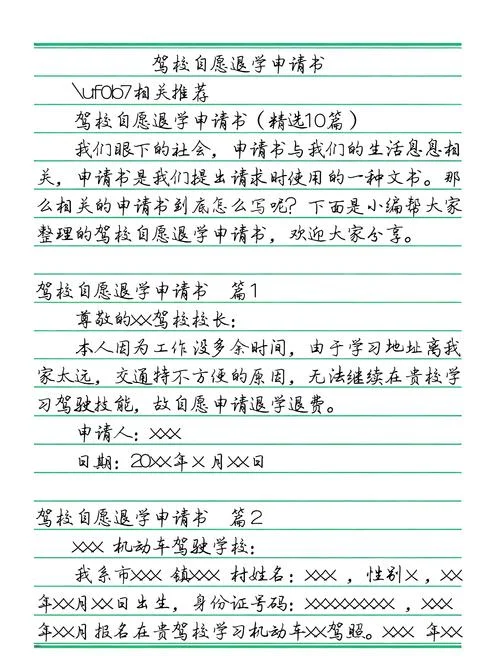 驾校自愿退学申请书
\uf0b7相关推荐
驾校自愿退学申请书（精选10篇）
我们眼下的社会，申请书与我们的生活息息相
关，申请书是我们提出请求时使用的一种文书。那
么相关的申请书到底怎么写呢？下面是小编帮大家
整理的驾校自愿退学申请书，欢迎大家分享。
驾校自愿退学申请书 篇1
尊敬的xx驾校校长：
本人因为工作没多余时间，由于学习地址离我
家太远，交通特不方便的原因，无法继续在贵校学
习驾驶技能，故自愿申请退学退费。
申请人：xxx
日期：20xx年x月xx日
驾校自愿退学申请书 篇2
xxx 机动车驾驶学校：
我系市xxx 镇xxx 村姓名：xxx ，性别x，xx
年xx月xx日出生，身份证号码：xxxxxxxxx ，xxx
年xx月报名在贵驾校学习机动车xx驾照。xxx 年xx